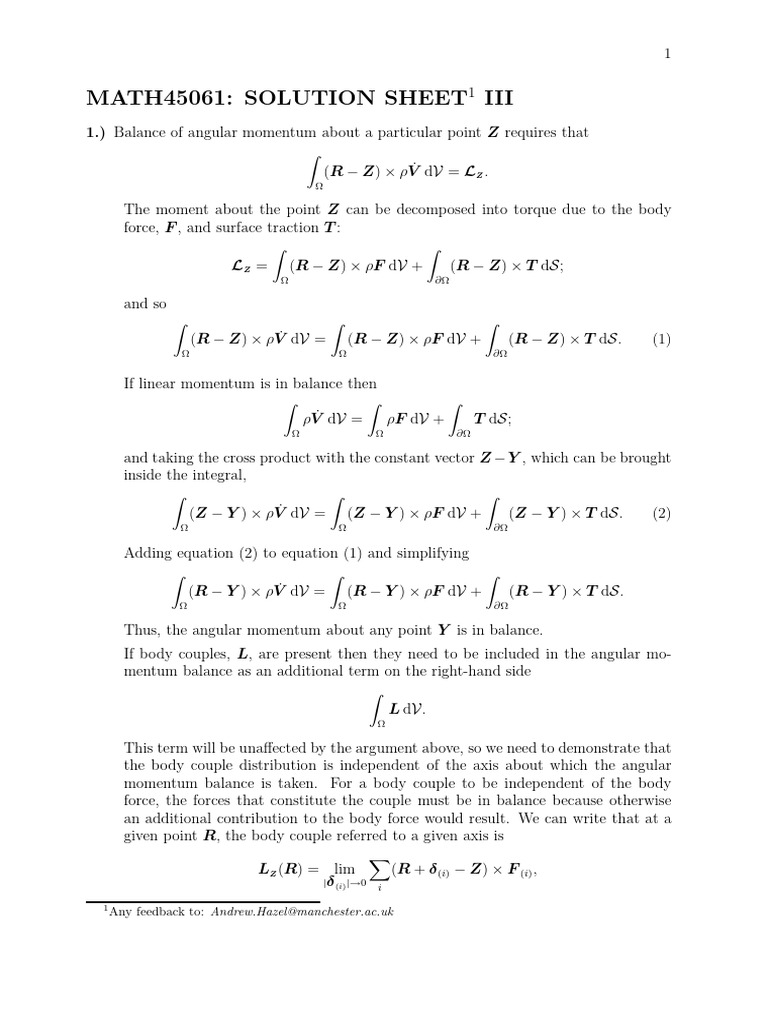 1
MATH45061: SOLUTION SHEET¹ III
1.) Balance of angular momentum about a particular point Z requires that
∫_Ω (R − Z) × ρV̇ d𝒱 = ℒ_Z.
The moment about the point Z can be decomposed into torque due to the body
force, F, and surface traction T:
ℒ_Z = ∫_Ω (R − Z) × ρF d𝒱 + ∫_∂Ω (R − Z) × T d𝒮;
and so
∫_Ω (R − Z) × ρV̇ d𝒱 = ∫_Ω (R − Z) × ρF d𝒱 + ∫_∂Ω (R − Z) × T d𝒮. (1)
If linear momentum is in balance then
∫_Ω ρV̇ d𝒱 = ∫_Ω ρF d𝒱 + ∫_∂Ω T d𝒮;
and taking the cross product with the constant vector Z − Y, which can be brought
inside the integral,
∫_Ω (Z − Y) × ρV̇ d𝒱 = ∫_Ω (Z − Y) × ρF d𝒱 + ∫_∂Ω (Z − Y) × T d𝒮. (2)
Adding equation (2) to equation (1) and simplifying
∫_Ω (R − Y) × ρV̇ d𝒱 = ∫_Ω (R − Y) × ρF d𝒱 + ∫_∂Ω (R − Y) × T d𝒮.
Thus, the angular momentum about any point Y is in balance.
If body couples, L, are present then they need to be included in the angular mo-
mentum balance as an additional term on the right-hand side
∫_Ω L d𝒱.
This term will be unaffected by the argument above, so we need to demonstrate that
the body couple distribution is independent of the axis about which the angular
momentum balance is taken. For a body couple to be independent of the body
force, the forces that constitute the couple must be in balance because otherwise
an additional contribution to the body force would result. We can write that at a
given point R, the body couple referred to a given axis is
L_Z(R) = lim_{|δ_(i)|→0} ∑_i (R + δ_(i) − Z) × F_(i),
¹Any feedback to: Andrew.Hazel@manchester.ac.uk